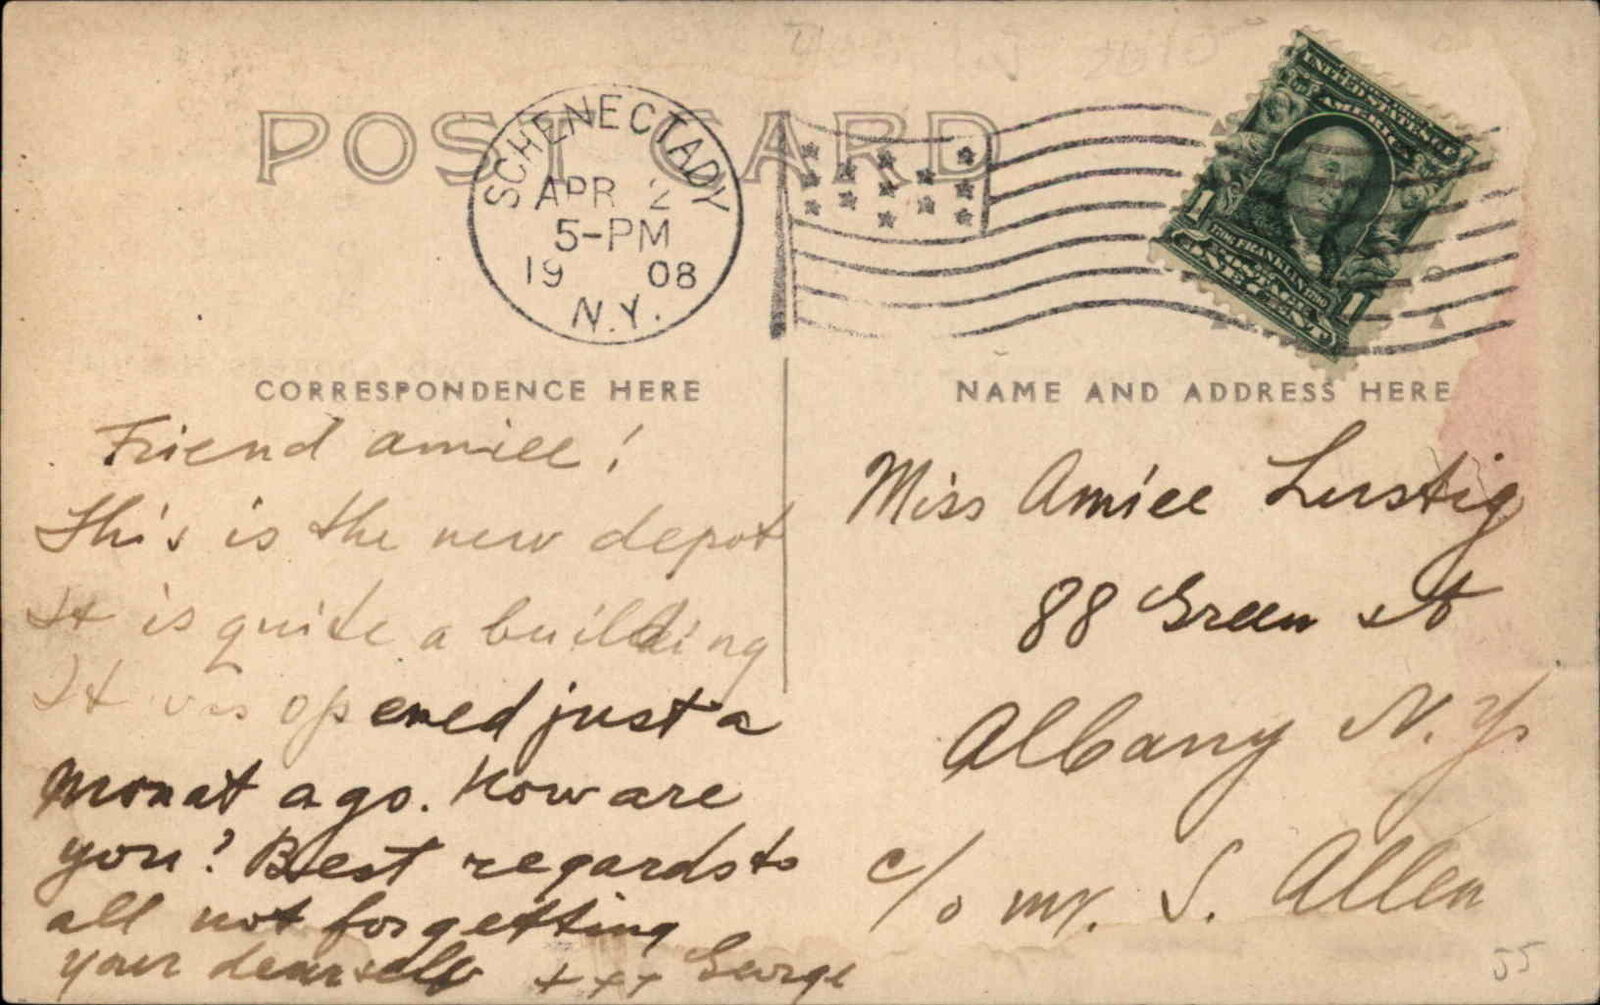 POST CARD
SCHENECTADY
APR 2
5-PM
19 08
N.Y.
UNITED STATES OF
AMERICA
1 1
1706 FRANKLIN 1790
ONE CENT
CORRESPONDENCE HERE
NAME AND ADDRESS HERE
Friend Amiee!
This is the new depot
It is quite a building
It was opened just a
monat ago. How are
you? Best regards to
all not forgetting
your dearself + + + George
Miss Amiee Lustig
88 Green st
Albany N.Y.
c/o mr. S. Allen
55